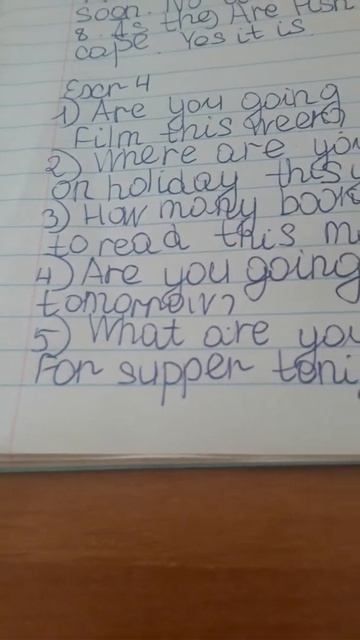 soon. No
8. Is the Are Fish
cape. Yes it is
Exer 4
1) Are you going
film this week?
2) Where are you
on holiday this
3) How many book
to read this m
4) Are you going
tomorrow?
5) What are you
For supper toni